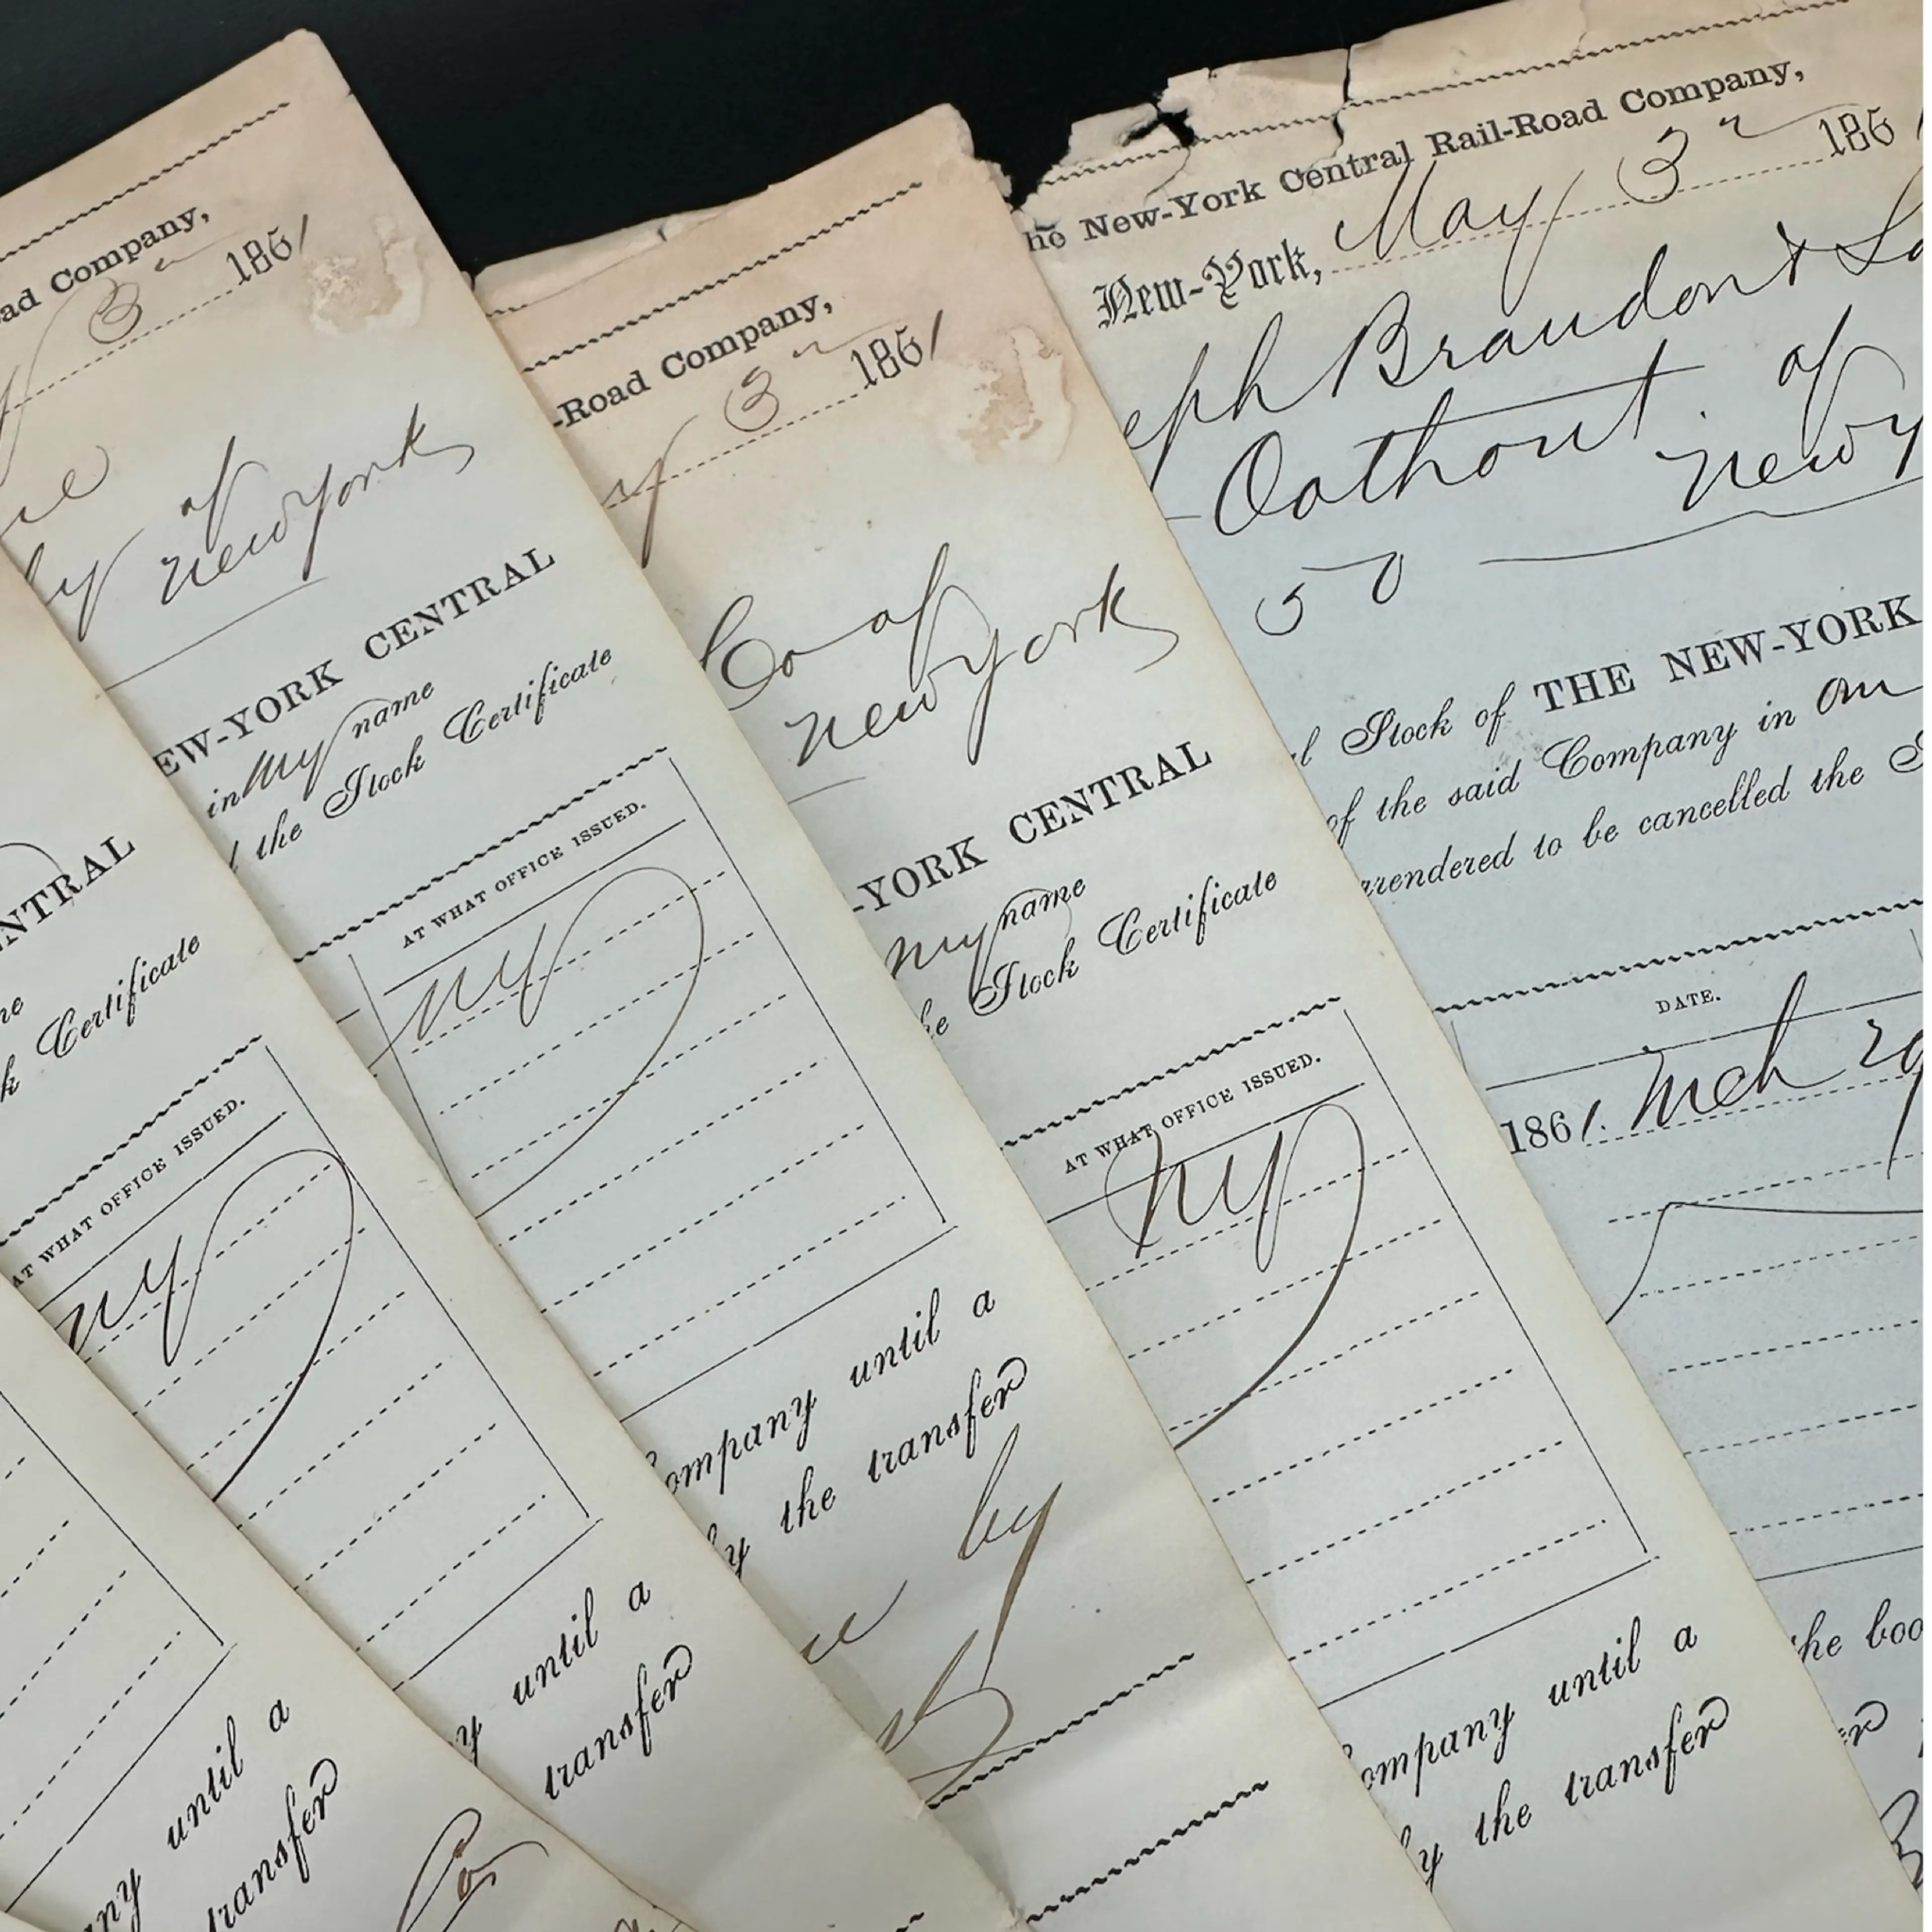 ad Company,
3 1861
of
New York
EW-YORK CENTRAL
in my name
the Stock Certificate
AT WHAT OFFICE ISSUED.
NY
ompany until a
y the transfer
by
NTRAL
ne
k Certificate
AT WHAT OFFICE ISSUED.
NY
y until a
transfer
Co
ny until a
transfer
-Road Company,
y 3 1861
Co of
New York
-YORK CENTRAL
my name
he Stock Certificate
AT WHAT OFFICE ISSUED.
NY
ompany until a
y the transfer
he New-York Central Rail-Road Company,
New-York, May 3 186
eph Braudon &
Oothout of
New Y
50
l Stock of THE NEW-YORK
of the said Company in our
rrendered to be cancelled the S
DATE.
1861. Mch 29
the boo
er